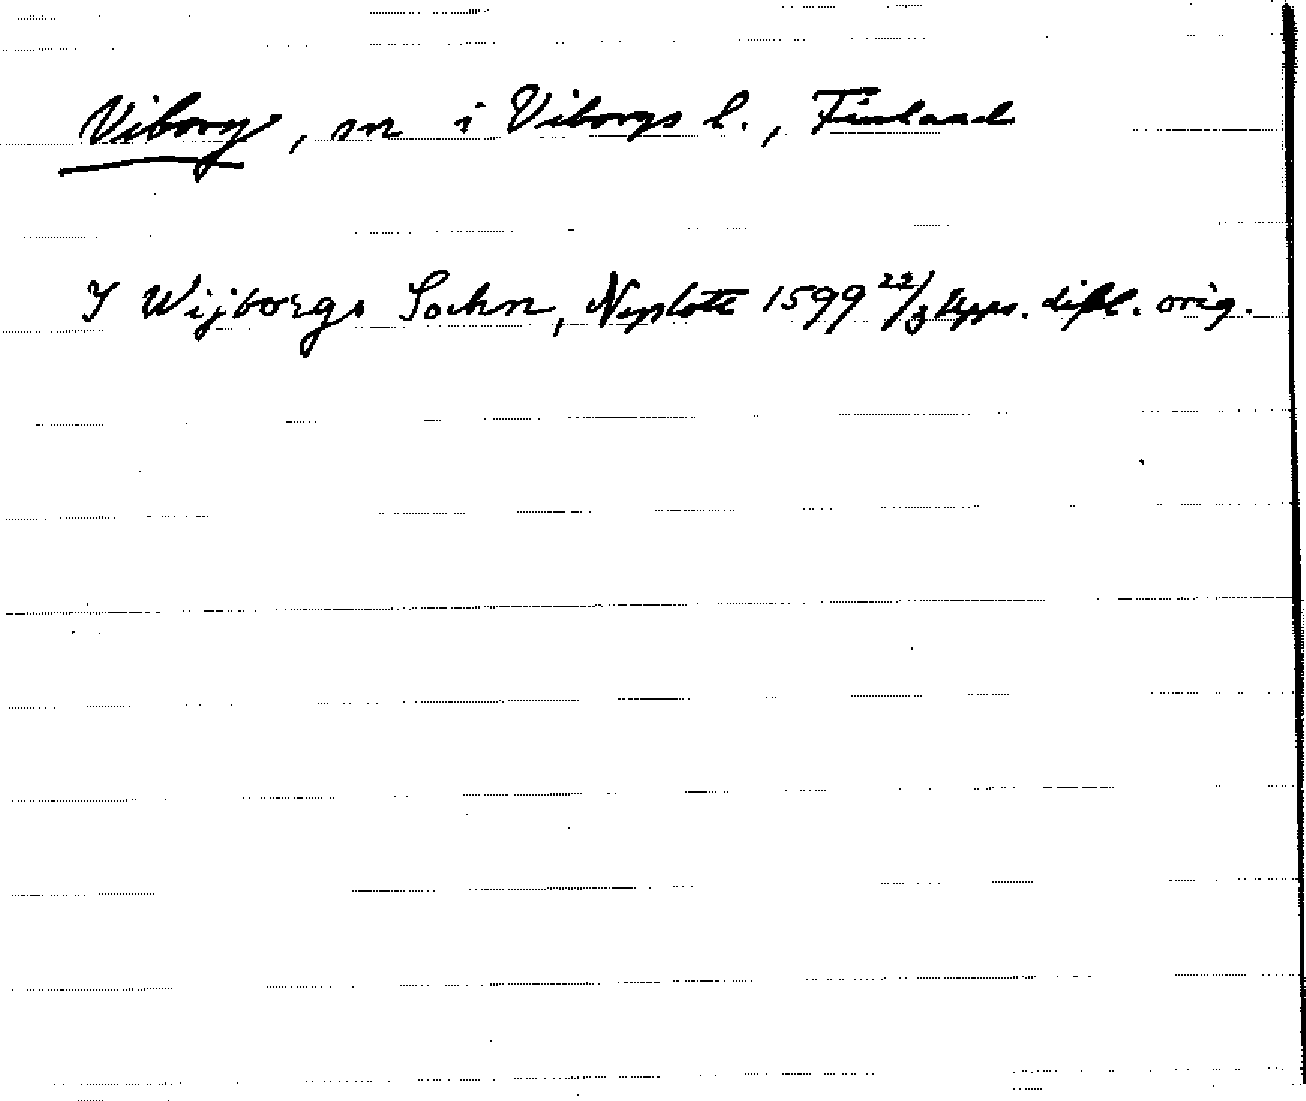 Viborg, sn i Viborgs l., Finland
I Wijborgs Sochn, Nyslott 1599 22/3 Upps. dipl. orig.